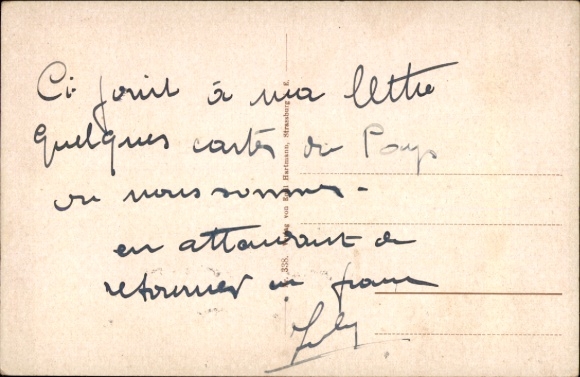 Ci-joint à ma lettre
quelques cartes du Pays
ou nous sommes -
en attendant de
retourner en france
Nr. 338. Verlag von Emil Hartmann, Strassburg i. E.